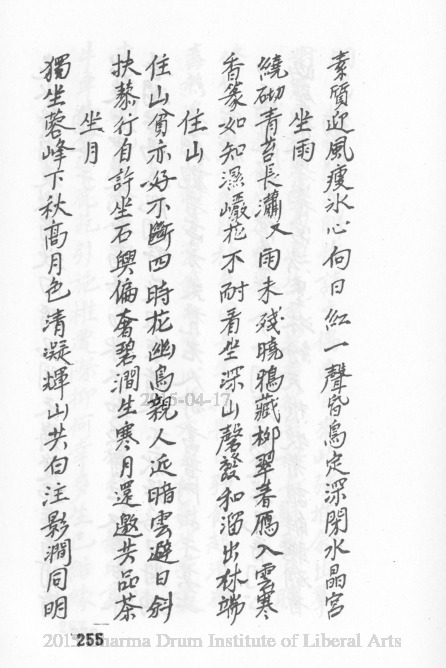 素質迎風瘦冰心向日紅一聲昏鳥定深閉水晶宮
坐雨
繞砌青苔長瀟又雨未殘曉鴉藏柳翠春雁入雲寒
香篆如知濕巖花不耐看坐深山磬發和溜出林端
住山
住山貧亦好不斷四時花幽鳥親人近暗雲避日斜
扶藜行自許坐石興偏奢碧澗生寒月還邀共品茶
坐月
獨坐蓉峰下秋高月色清凝輝山共白注影澗同明
255
2016-04-17
Dharma Drum Institute of Liberal Arts